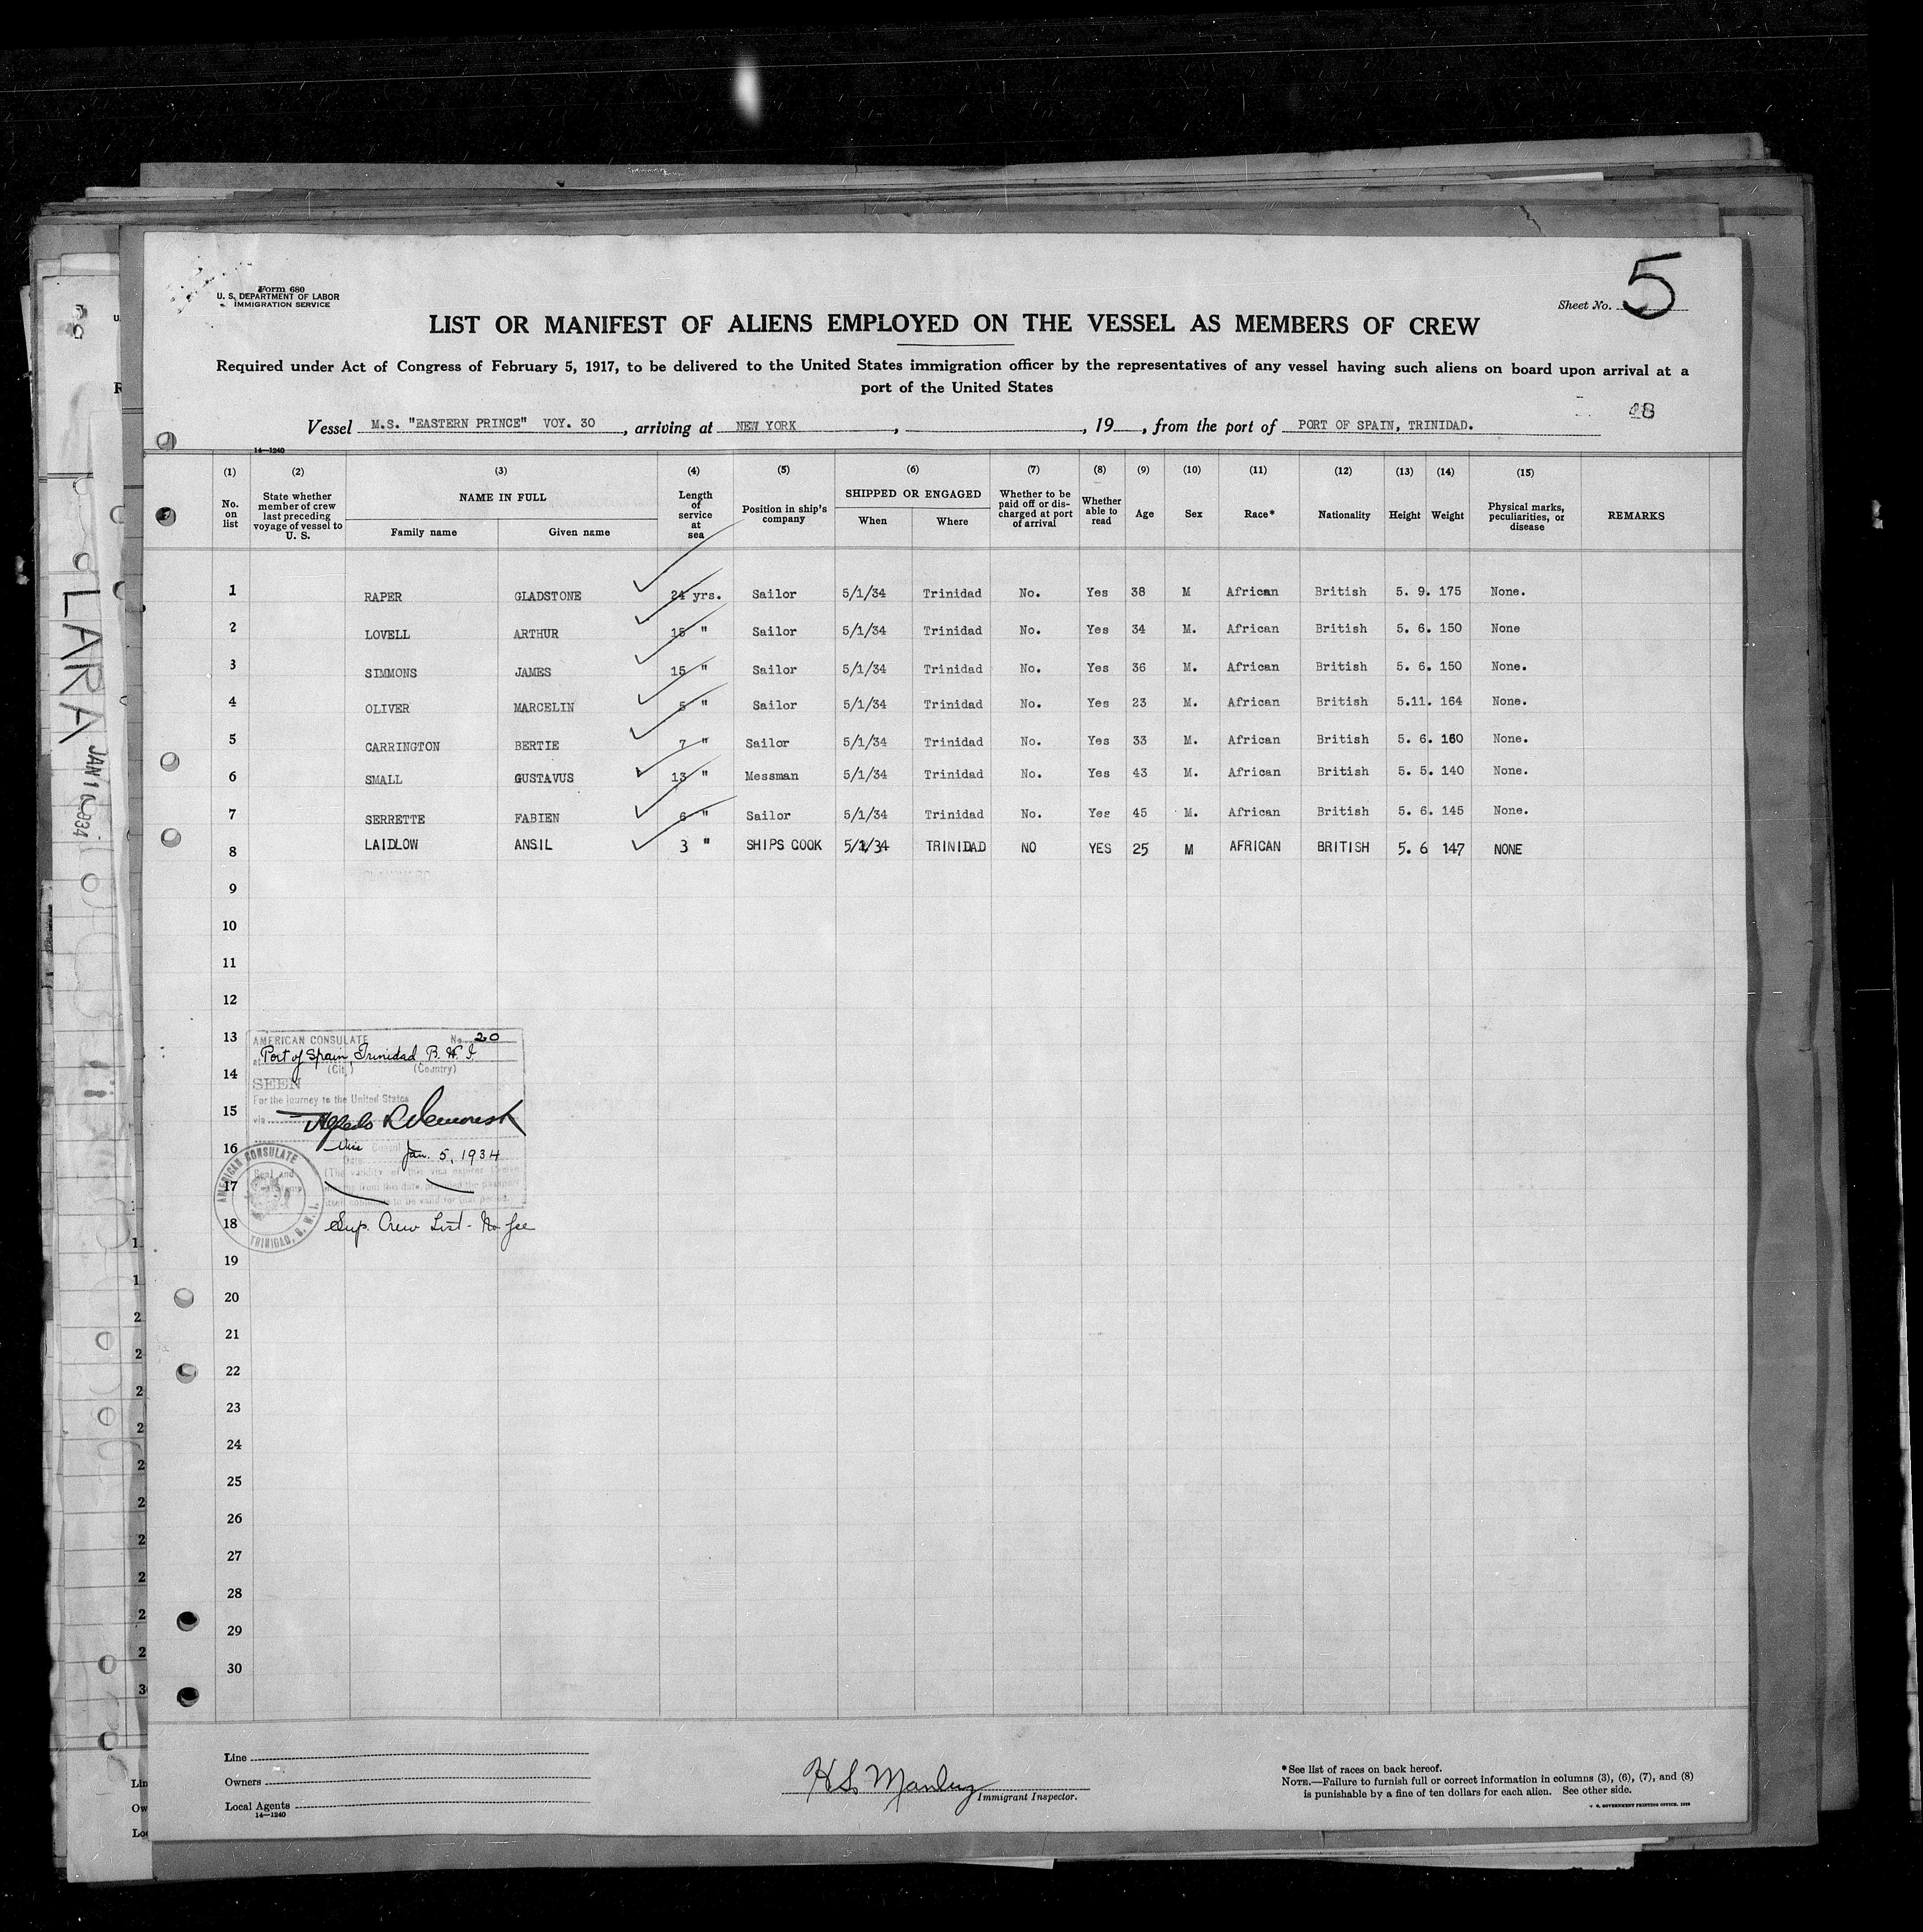 Form 680
U. S. DEPARTMENT OF LABOR
IMMIGRATION SERVICE
Sheet No. 5
LIST OR MANIFEST OF ALIENS EMPLOYED ON THE VESSEL AS MEMBERS OF CREW
Required under Act of Congress of February 5, 1917, to be delivered to the United States immigration officer by the representatives of any vessel having such aliens on board upon arrival at a
port of the United States
Vessel M.S. "EASTERN PRINCE" VOY. 30, arriving at NEW YORK, , 19 , from the port of PORT OF SPAIN, TRINIDAD.
14—1240
(1) (2) (3) (4) (5) (6) (7) (8) (9) (10) (11) (12) (13) (14) (15)
No. on list
State whether member of crew last preceding voyage of vessel to U. S.
NAME IN FULL
Family name
Given name
Length of service at sea
Position in ship's company
SHIPPED OR ENGAGED
When
Where
Whether to be paid off or discharged at port of arrival
Whether able to read
Age
Sex
Race*
Nationality
Height
Weight
Physical marks, peculiarities, or disease
REMARKS
1 RAPER GLADSTONE 24 yrs. Sailor 5/1/34 Trinidad No. Yes 38 M African British 5. 9. 175 None.
2 LOVELL ARTHUR 15 " Sailor 5/1/34 Trinidad No. Yes 34 M. African British 5. 6. 150 None
3 SIMMONS JAMES 15 " Sailor 5/1/34 Trinidad No. Yes 36 M. African British 5. 6. 150 None.
4 OLIVER MARCELIN 5 " Sailor 5/1/34 Trinidad No. Yes 23 M. African British 5.11. 164 None.
5 CARRINGTON BERTIE 7 " Sailor 5/1/34 Trinidad No. Yes 33 M. African British 5. 6. 160 None.
6 SMALL GUSTAVUS 13 " Messman 5/1/34 Trinidad No. Yes 43 M. African British 5. 5. 140 None.
7 SERRETTE FABIEN 6 " Sailor 5/1/34 Trinidad No. Yes 45 M. African British 5. 6. 145 None.
8 LAIDLOW ANSIL 3 " SHIPS COOK 5/1/34 TRINIDAD NO YES 25 M AFRICAN BRITISH 5. 6 147 NONE
9
10
11
12
13
14
15
16
17
18
19
20
21
22
23
24
25
26
27
28
29
30
AMERICAN CONSULATE No. 20
at Port of Spain, Trinidad, B. W. I.
(City) (Country)
SEEN
For the journey to the United States
via
Vice Consul
Date: Jan. 5, 1934
AMERICAN CONSULATE
TRINIDAD, B. W. I.
Sup. Crew List - No fee
Line
Owners
Local Agents
14—1240
Immigrant Inspector.
*See list of races on back hereof.
NOTE.—Failure to furnish full or correct information in columns (3), (6), (7), and (8)
is punishable by a fine of ten dollars for each alien. See other side.
LARA